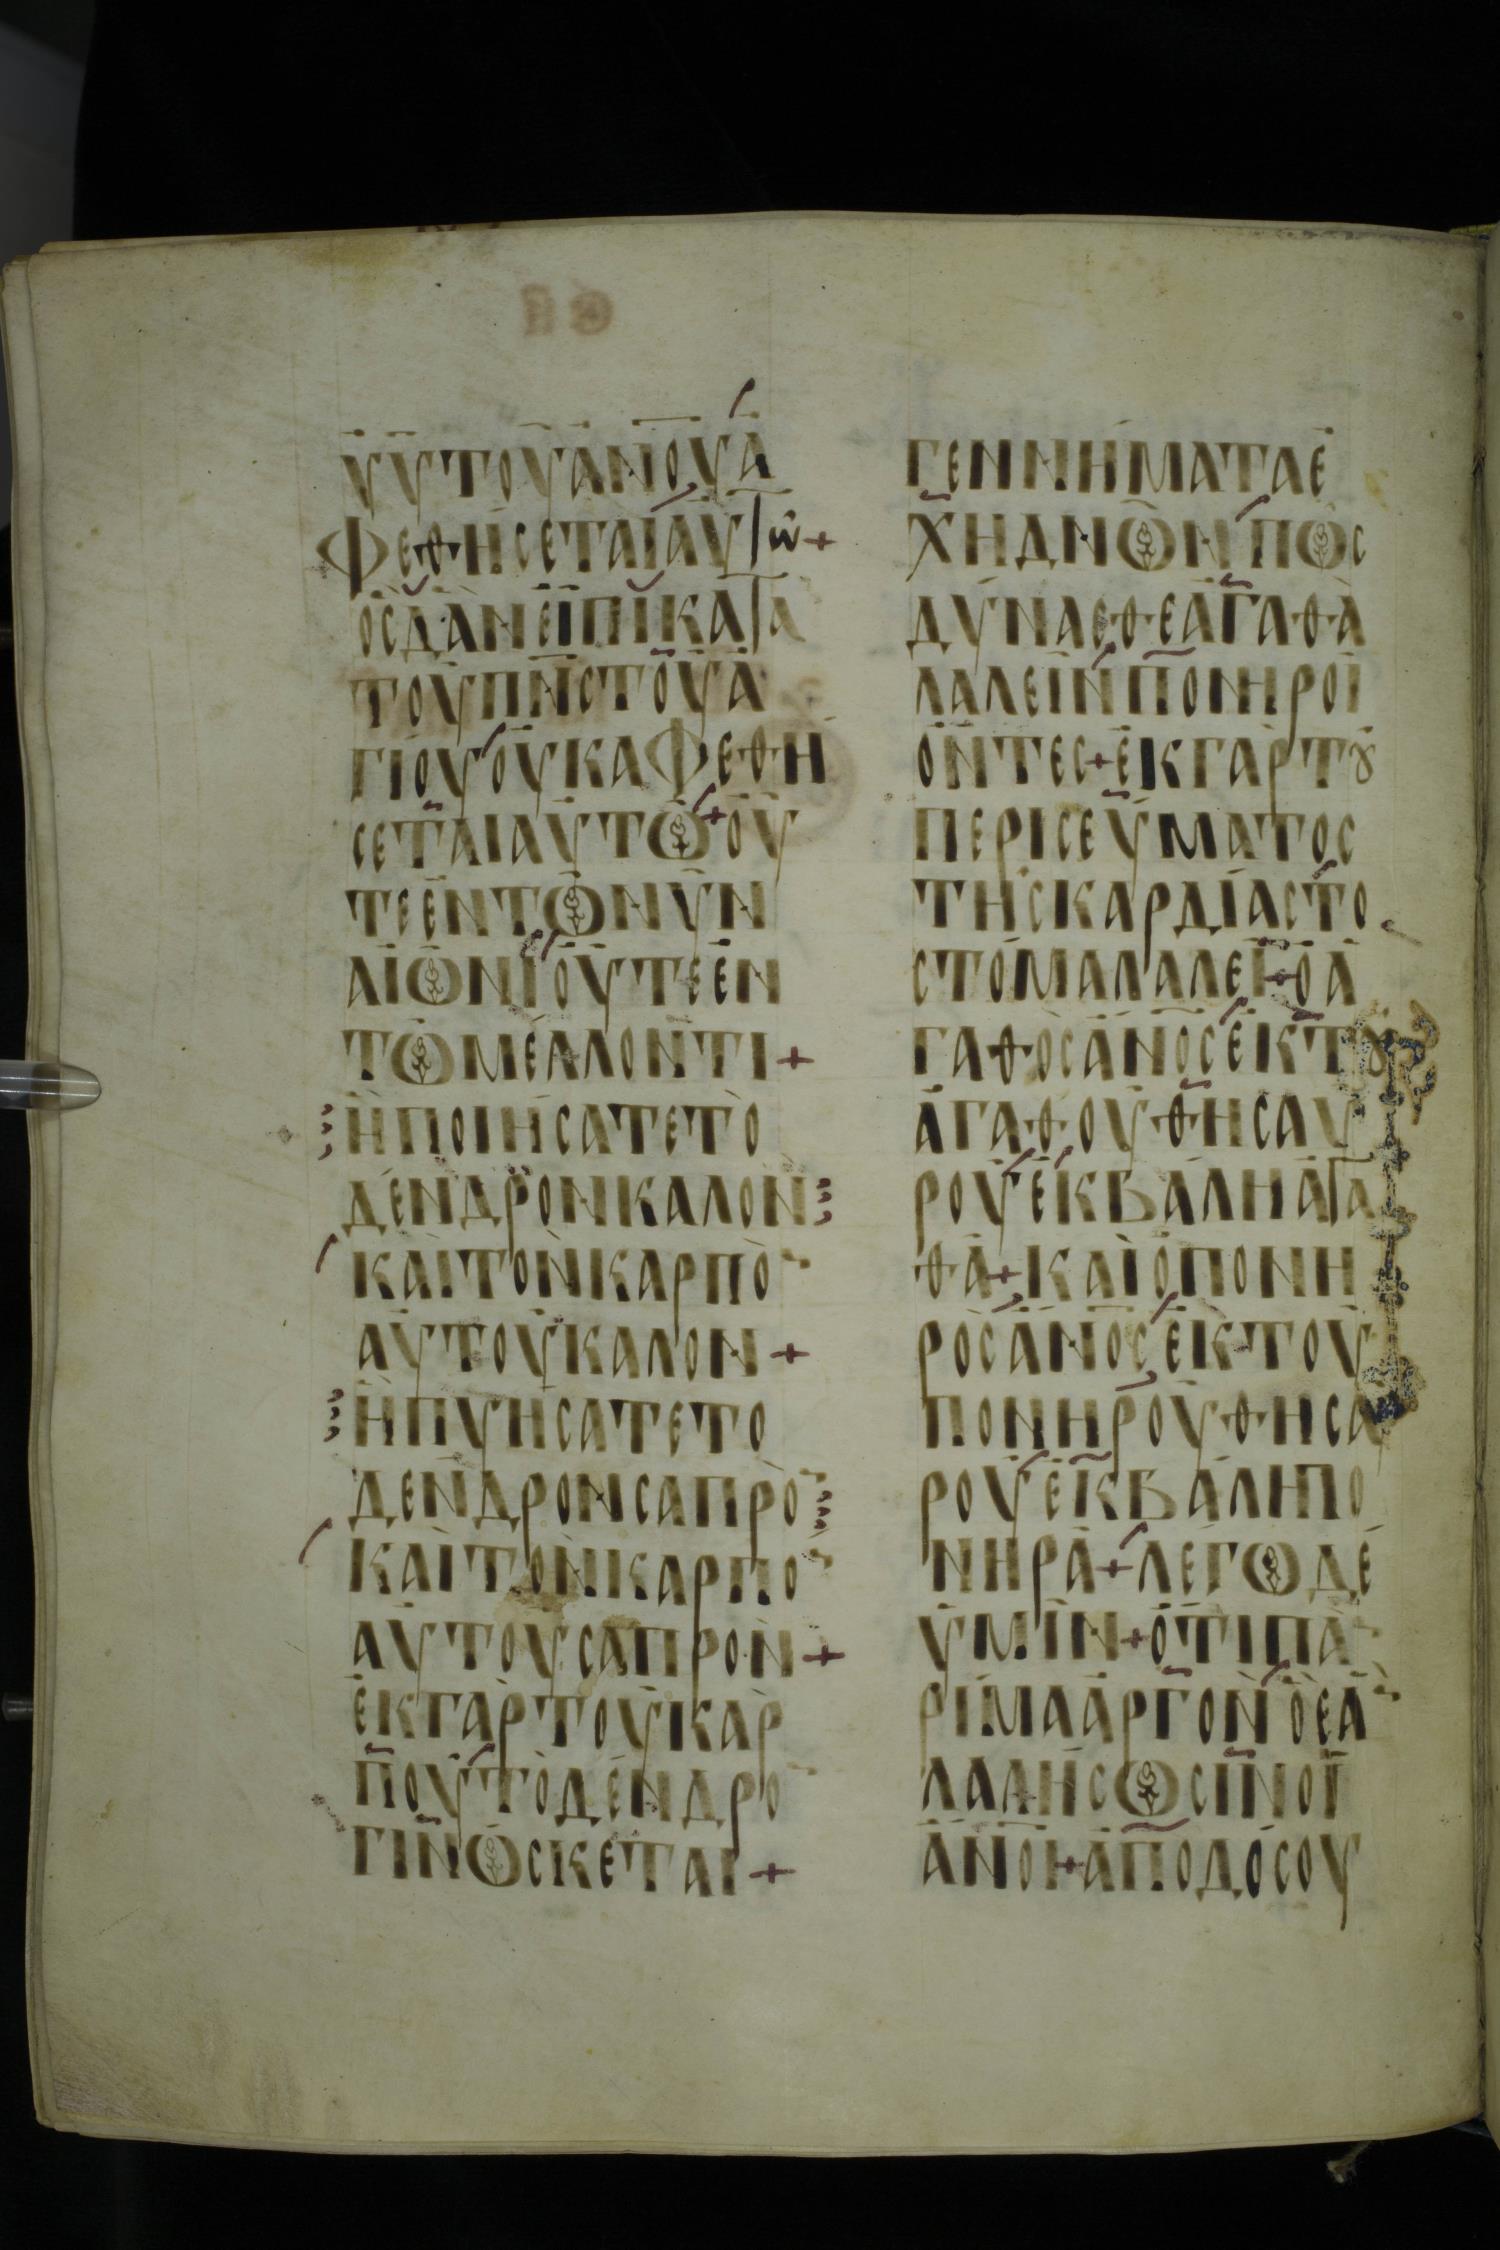 ῩῩΤΟΥΑΝΟΥΑ
ΦΕΘΗСΕΤΑΙΑΥΤω+
ΟСΔΑΝΕΙΠΙΚΑΤΑ
ΤΟΥΠΝСΤΟΥΑ
ΓΙΟΥΟΥΚΑΦΕΘΗ
СΕΤΑΙΑΥΤΩ+ΟΥ
ΤΕΕΝΤΩΝΥΝ
ΑΙΩΝΙΟΥΤΕΕΝ
ΤΩΜΕΛΛΟΝΤΙ+
ΗΠΟΙΗСΑΤΕΤΟ
ΔΕΝΔΡΟΝΚΑΛΟΝ
ΚΑΙΤΟΝΚΑΡΠΟ
ΑΥΤΟΥΚΑΛΟΝ+
ΗΠΥΗСΑΤΕΤΟ
ΔΕΝΔΡΟΝСΑΠΡΟ
ΚΑΙΤΟΝΚΑΡΠΟ
ΑΥΤΟΥСΑΠΡΟΝ+
ΕΚΓΑΡΤΟΥΚΑΡ
ΠΟΥΤΟΔΕΝΔΡΟ
ΓΙΝΩСΚΕΤΑΙ+
ΓΕΝΝΗΜΑΤΑΕ
ΧΗΔΝΩΝΠΩС
ΔΥΝΑСΘΕΑΓΑΘΑ
ΛΑΛΕΙΝΠΟΝΗΡΟΙ
ΟΝΤΕС+ΕΚΓΑΡΤȣ
ΠΕΡΙСΕΥΜΑΤΟС
ΤΗСΚΑΡΔΙΑСΤΟ
СΤΟΜΑΛΑΛΕΙ+ΟΑ
ΓΑΘΟСΑΝΟСΕΚΤȣ
ΑΓΑΘΟΥΘΗСΑΥ
ΡΟΥΕΚΒΑΛΗΑΓΑ
ΘΑ+ΚΑΙΟΠΟΝΗ
ΡΟСΑΝΟСΕΚΤΟΥ
ΠΟΝΗΡΟΥΘΗСΑ
ΡΟΥΕΚΒΑΛΗΠΟ
ΝΗΡΑ+ΛΕΓΩΔΕ
ΥΜΙΝ+ΟΤΙΠΑ
ΡΙΜΑΑΡΓΟΝΟΕΑ
ΛΑΛΗСΩСΙΝΟΙ
ΑΝΟΙ+ΑΠΟΔΟСΟΥ